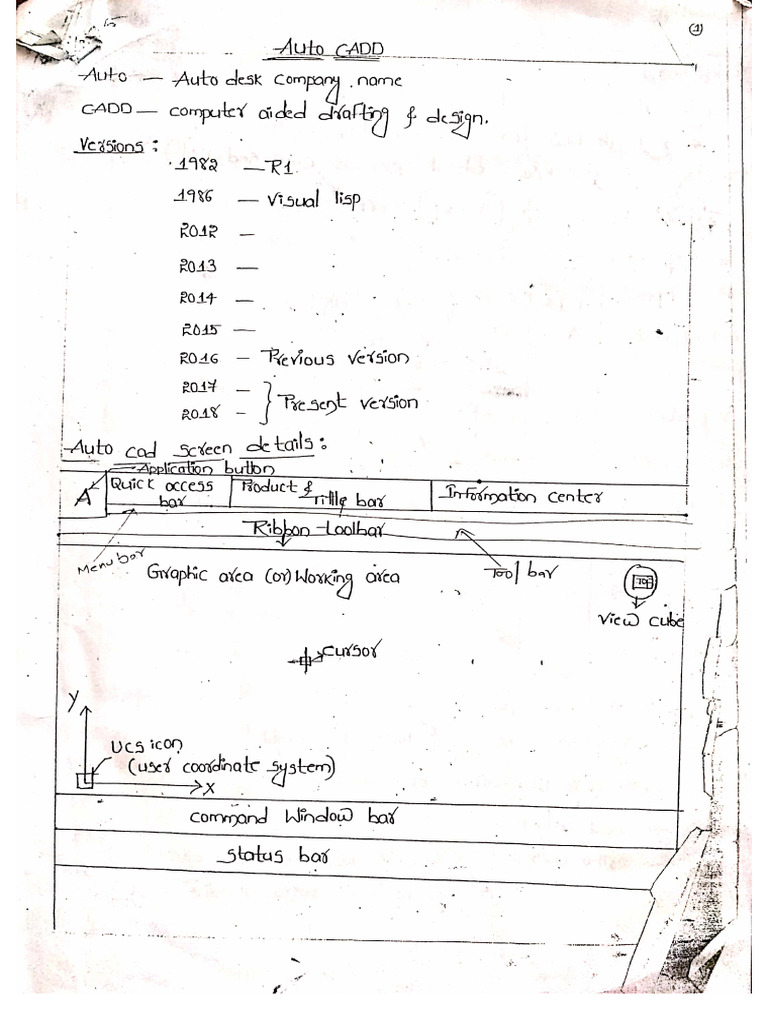 (1)
Auto CADD
Auto — Auto desk company name
CADD — computer aided drafting & design.
Versions :
1982 — R1
1986 — Visual lisp
2012 —
2013 —
2014 —
2015 —
2016 — Previous version
2017 —
2018 — } Present version
Auto cad screen details :
Application button
A
Quick access bar
Product & Title bar
Information center
Ribbon toolbar
Menu bar
Graphic area (or) Working area
Tool bar
TOP
View cube
Cursor
Y
UCS icon
(user coordinate system)
X
command Window bar
status bar